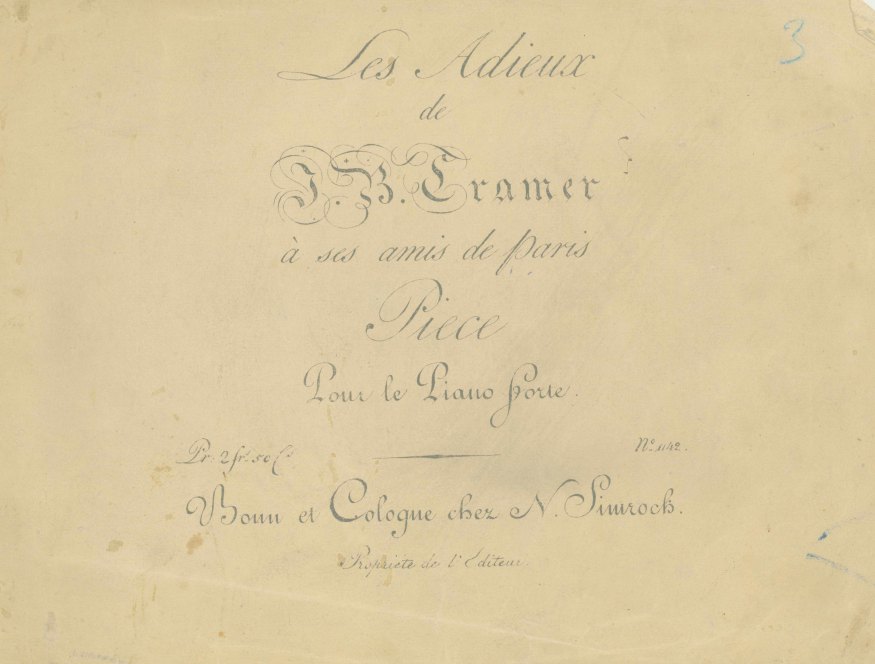 3
Les Adieux
de
J. B. Cramer
à ses amis de Paris
Piece
Pour le Piano Forte.
Pr: 2 fr. 50 Cs
No. 1142.
Bonn et Cologne chez N. Simrock.
Propriete de l'Editeur.